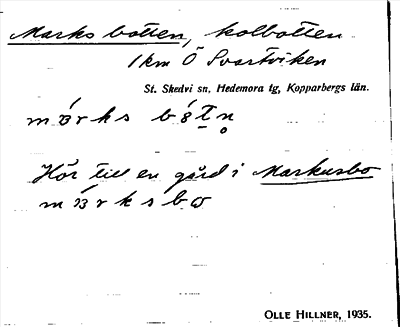 Marks botten, kolbotten
1 km Ö Svartviken
St. Skedvi sn, Hedemora tg, Kopparbergs län.
Hör till en gård i Markusbo
OLLE HILLNER, 1935.